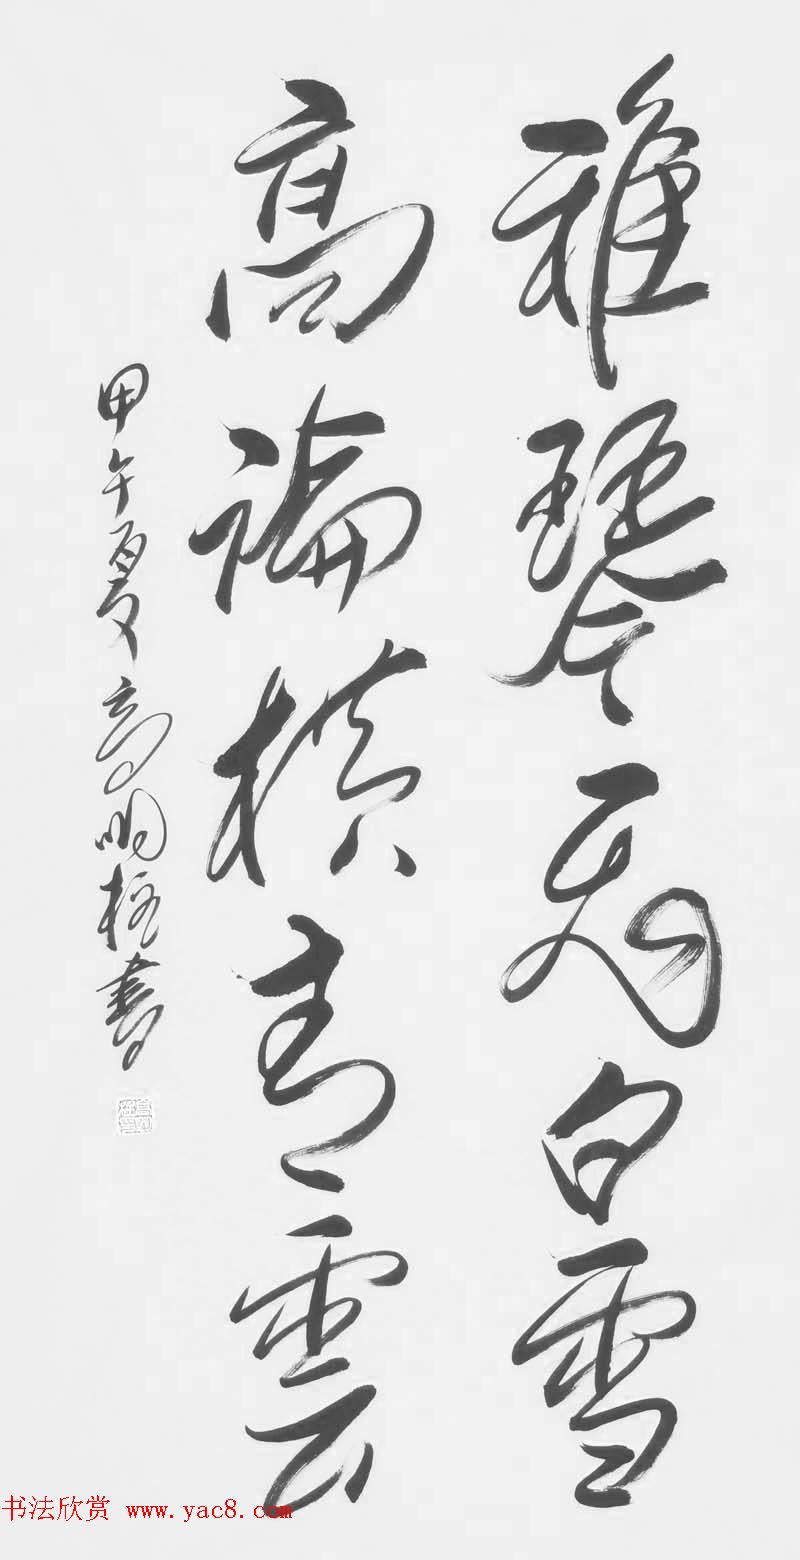 雅琴飛白雪
高論橫青雲
甲午夏高明柱書
书法欣赏 www.yac8.com